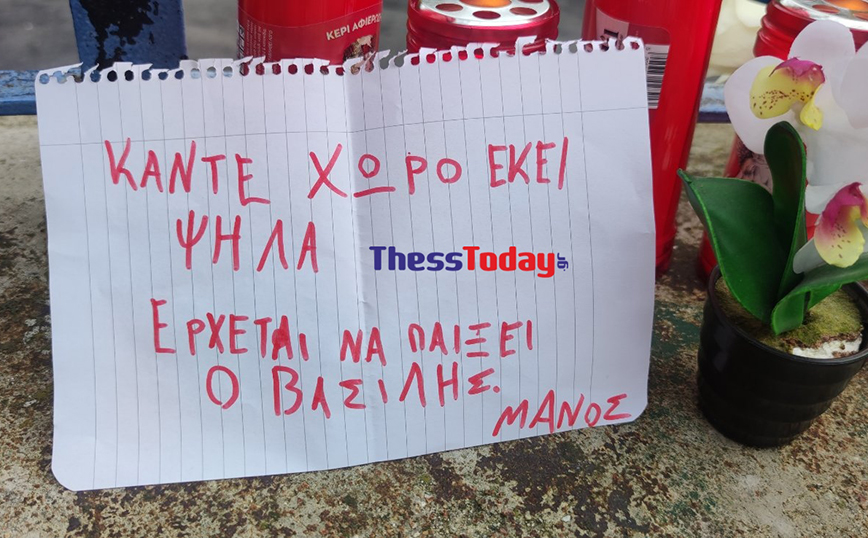 ΚΕΡΙ ΑΦΙΕΡΩ
ΚΑΝΤΕ ΧΩΡΟ ΕΚΕΙ
ΨΗΛΑ
ThessToday.gr
ΕΡΧΕΤΑΙ ΝΑ ΠΑΙΞΕΙ
Ο ΒΑΣΙΛΗΣ.
ΜΑΝΟΣ